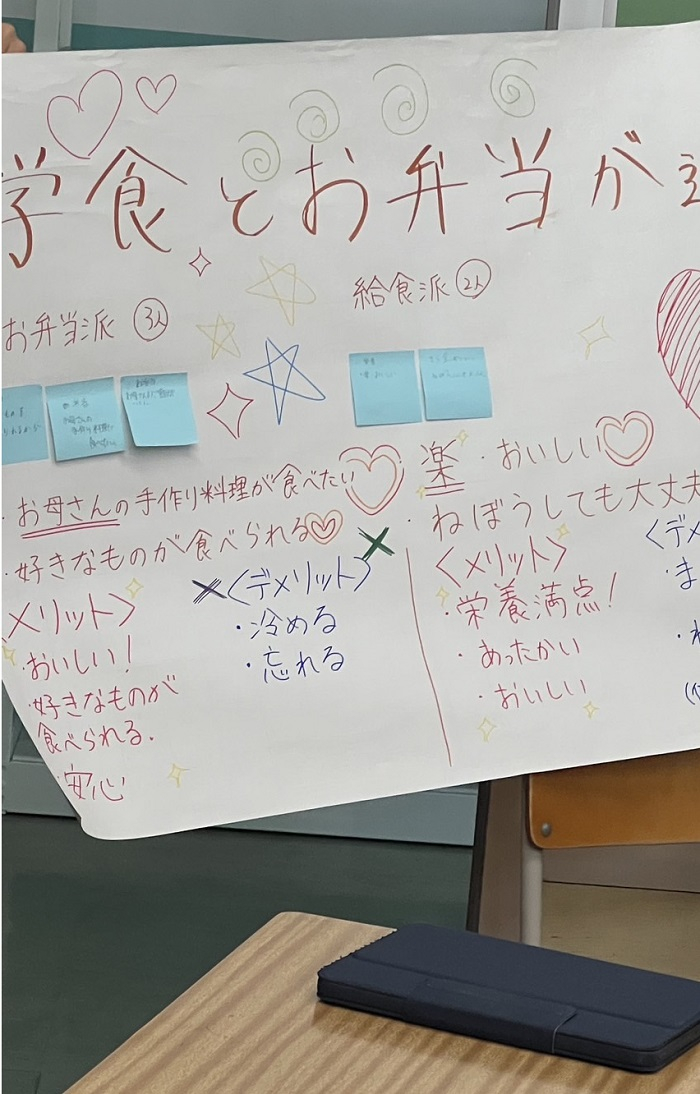 学食とお弁当が
お弁当派 3人
給食派 2人
・お母さんの手作り料理が食べたい
・好きなものが食べられる
メリット>
・おいしい!
・好きなものが
食べられる.
・安心
×<デメリット>
・冷める
・忘れる
楽・おいしい
・ねぼうしても大丈夫
<メリット>
・栄養満点!
・あったかい
・おいしい
<デメ
・ま